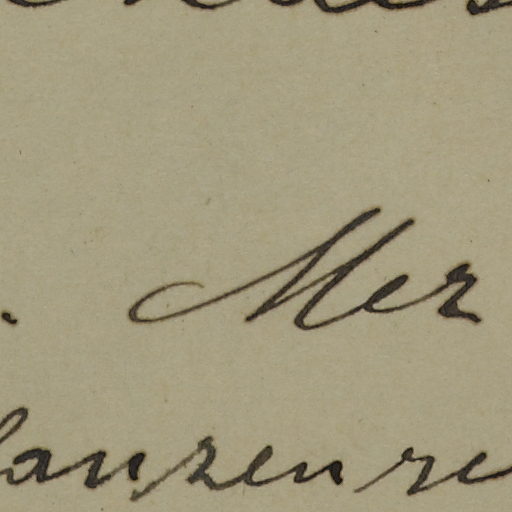 . Mer
lanzenre